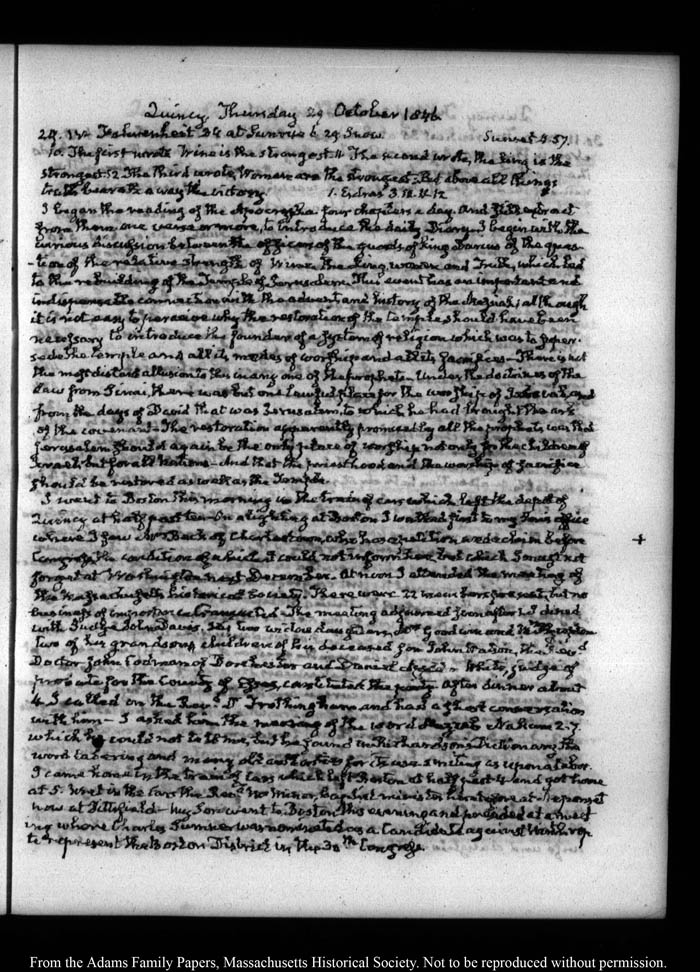 Quincy Thursday 29 October 1846.
29. IV. Fahrenheit 34 at Sunrise 6. 29 Snow. Sunset 5.57.
10. The first wrote Wine is the strongest 11. The second wrote, the king is the
strongest 12 The third wrote, Women are the strongest: But above all things
truth beareth away the victory. 1. Esdras 3. 10. 11. 12
I began the reading of the Apocrypha four chapters a day. And still extract
from them one verse or more, to introduce the daily Diary. I begin with the
curious discussion between the officers of the guards of king Darius of the ques-
-tion of the relative strength of Wine, the king, women and Truth, which led
to the rebuilding of the Temple of Jerusalem. This event has an important and
indispensable connection with the advent and history of the Messiah; although
it is not easy to perceive why the restoration of the temple should have been
necessary to introduce the founder of a System of religion which was to super-
sede the temple and all its modes of worship and all its sacrifices. There is not
the most distant allusion to this in any one of the prophets. Under the doctrines of the
Law from Sinai, there was but one lawful place for the worship of Jehovah, and
from the days of David that was Jerusalem, to which he had brought the ark
of the covenant. The restoration apparently promised by all the prophets was that
Jerusalem should again be the only place of worship not only for the children of
Israel but for all Nations. And that the priesthood and the worship of sacrifice
should be restored as well as the Temple.
I went to Boston this morning in the train of cars which left the depot of
Quincy at half past ten. On alighting at Boston I walked first to my Sons office
where I saw Mr Back of Charlestown, who has a petition and a claim before
Congress the condition of which I could not inform him but which I must not
forget at Washington next December. At noon I attended the meeting of
the Massachusetts historical Society. There were 22 members present, but no
business of importance transacted. The meeting adjourned soon after 1. I dined
with Judge John Davis, his two widow daughters, Mrs Goodwin and Mrs
two of her grandsons children of his deceased son John Watson, the Revd
Doctor John Codman of Dorchester and Daniel Appleton White, judge of
probate for the County of Essex, constituted the party. After dinner about
4. I called on the Revd Dr Frothingham and had a short conversation
with him. I asked him the meaning of the word Nahum 2.7.
which he could not tell me, but he found in Richardson's Dictionary the
word tabering and many old authorities for its use smiting as upon a tabor.
I came home in the train of cars which left Boston at half past 4 and got home
at 5. Met in the cars the Revd Mr minister heretofore at Neponset
now at Pittsfield. My Son went to Boston this evening and presided at a meet
ing where Charles Sumner was nominated as a Candidate against Winthrop
to represent the Boston District in the 30th Congress.
From the Adams Family Papers, Massachusetts Historical Society. Not to be reproduced without permission.